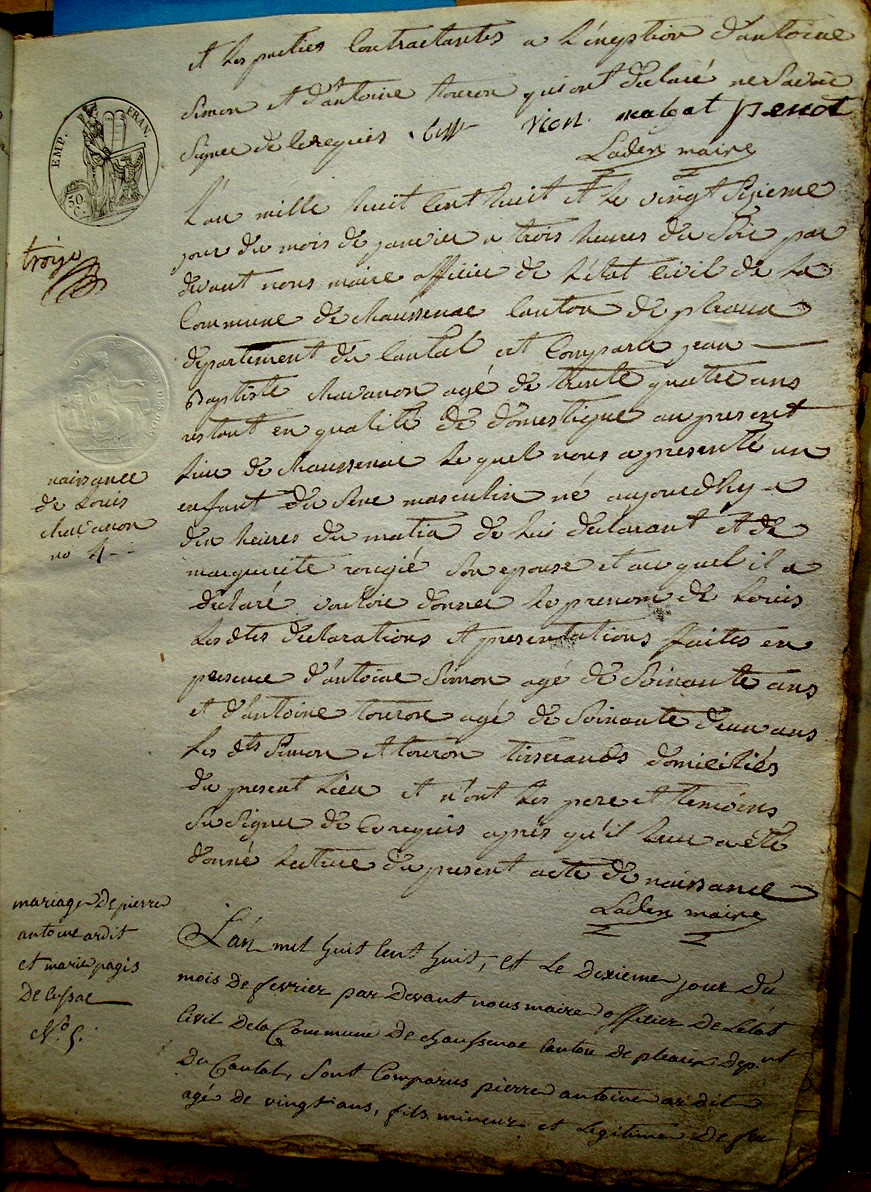 et les parties contractantes a l'exeption d'antoine
Simon et d'antoine touron qui ont declaré ne Savoir
Signer de le requis. vion. malgat penot
Laden maire
EMP. FRAN.
50 C.
troise
L'an mille huit cent huit et le vingt Sixieme
jour du mois de janvier a trois heures du Soir par
devant nous maire officier de l'état Civil de la
Commune de chaussenac Canton de pleaux
departement du Cantal est Comparu jean
Baptiste chavanon agé de trente quatre ans
restant en qualité de domestique au present
Lieu de chaussenac Lequel nous a presenté un
enfant du Sexe masculin né aujourdhy a
dix heures du matin de lui declarant et de
marguerite rougié Son epouse et au quel il a
declaré vouloir donner le prenom de Louis
Les dtes declarations et presentations faites en
presence d'antoine Simon agé de Soixante ans
et d'antoine touron agé de Soixante deux ans
Les dts Simon et touron tisserands domiciliés
du present Lieu et n'ont Les pere et temoins
Su Signer de Ce requis après qu'il leur a été
donné Lecture du present acte de naissance
Laden maire
naissance
de Louis
chavanon
no 4
mariage de pierre
antoine ardit
et marie pagis
De Cussac
N.º 5.
L'an mil huit Cent huit, et Le dixieme jour Du
mois De fevrier par Devant nous maire officier De L'état
Civil De la Commune De chaussenac Canton De pleaux Dep.nt
Du Cantal, Sont Comparus pierre antoine ardit
agé de vingt ans, fils mineur et Legitime De feu